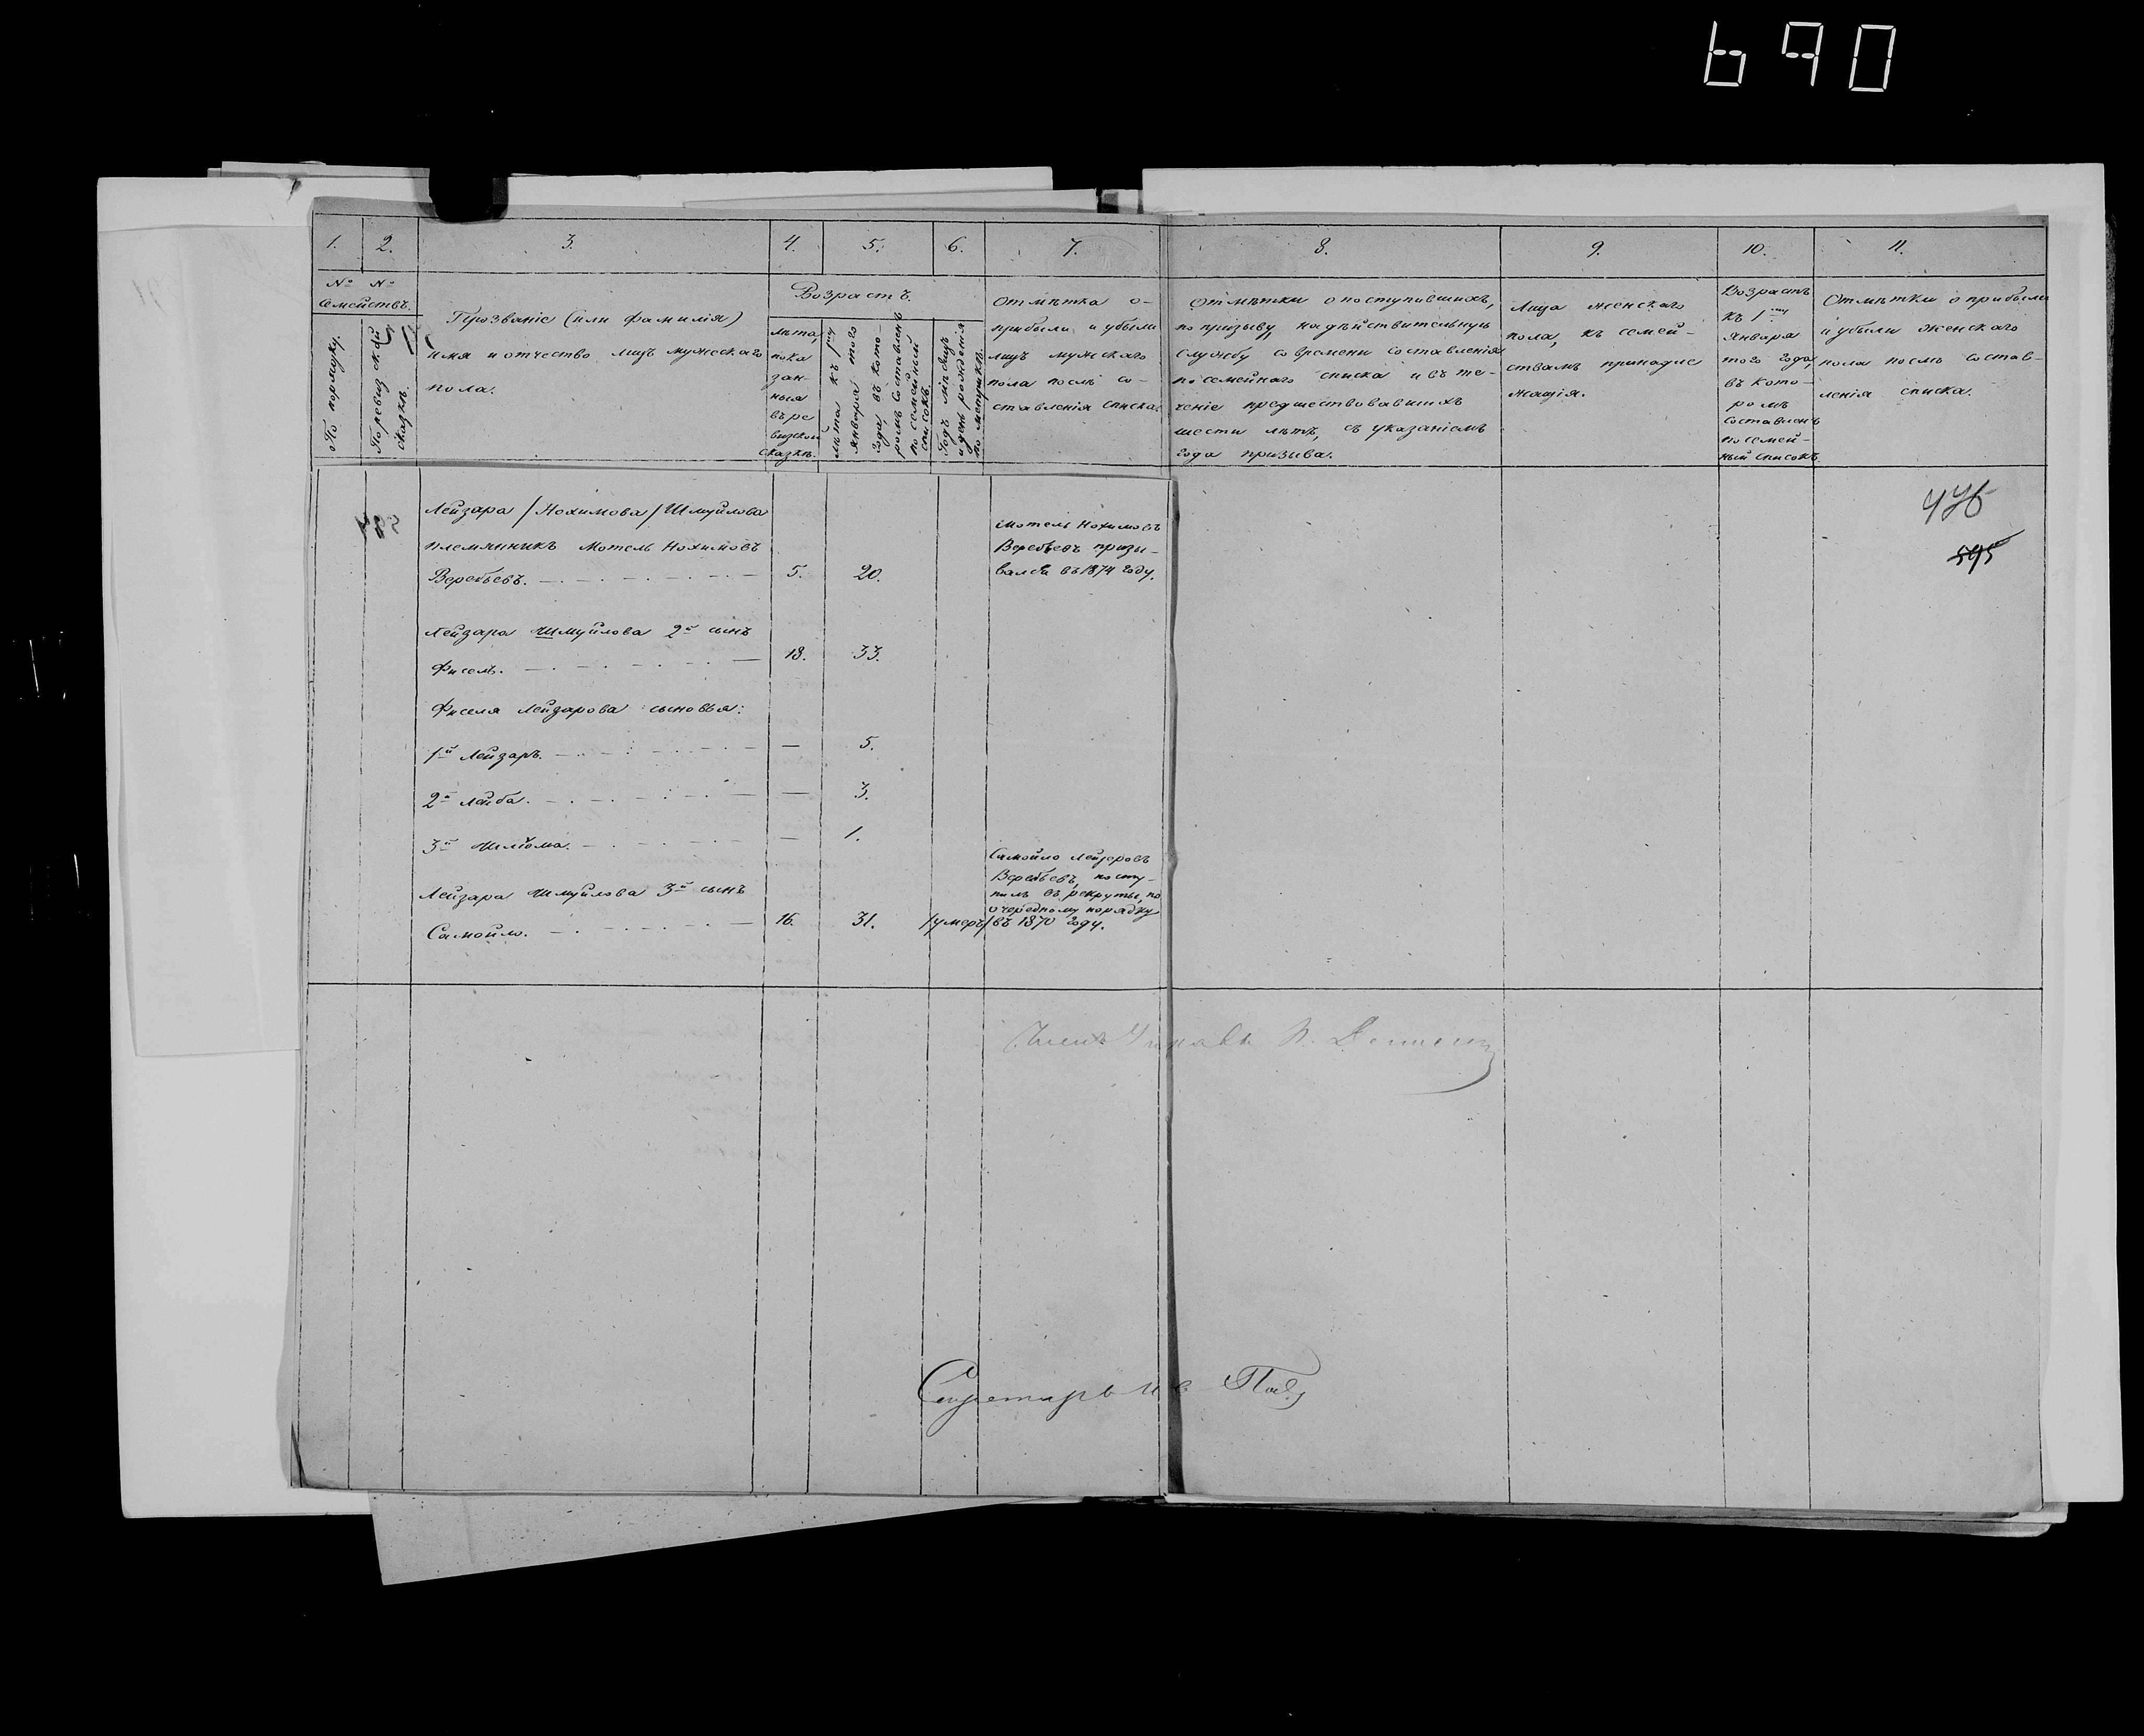 690
1. 2. 3. 4. 5. 6. 7. 8. 9. 10. 11.
№ №
Семействъ.
По порядку.
По ревизской
сказкѣ.
Прозваніе (или фамилія)
имя и отчество лицъ мужескаго
пола.
Возрастъ.
лѣта,
пока
зан-
ныя
въ ре
визской
сказкѣ.
лѣта къ 1му
января того
года, въ кото-
ромъ составленъ
посемейный
списокъ.
Годъ мѣсяцъ
и день рожденія
по метрикѣ.
Отмѣтка о-
прибыли и убыли
лицъ мужскаго
пола послѣ со-
ставленія списка.
Отмѣтки о поступившихъ,
по призыву, на дѣйствительную
службу со времени составленія
посемейнаго списка и въ те-
ченіе предшествовавшихъ
шести лѣтъ, съ указаніемъ
года призыва.
Лица женскаго
пола, къ семей-
ствамъ принадле
жащія.
Возрастъ
къ 1му
Января
того года,
въ кото-
ромъ
составленъ
посемей-
ный списокъ
Отмѣтки о прибыли
и убыли женскаго
пола послѣ состав-
ленія списка.
Лейзара /Нохимова/ Шмуйлова
племянникъ Мотель Нохимовъ
Веребьевъ. 5. 20.
Мотель Нохимовъ
Веребьевъ призы-
вался въ 1874 году.
595
Лейзара Шмуйлова 2й сынъ
Фисель. 18. 33.
Фиселя Лейзарова сыновья:
1й Лейзаръ. — 5.
2й Лейба. — 3.
3й Шлiома. — 1.
Лейзара Шмуйлова 3й сынъ
Самойло. 16. 31. /умеръ/
Самойло Лейзеровъ
Веребьевъ, посту-
пилъ въ рекруты, по
очередному порядку
въ 1870 году.
Членъ Управы
Секретарь